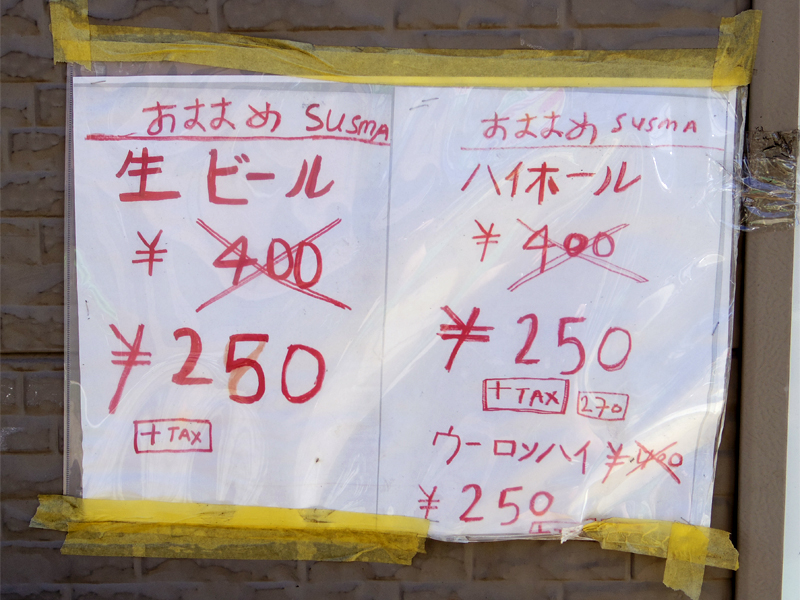 おすすめ SUSMA
生ビール
¥ 400
¥250
+TAX
おすすめ SUSMA
ハイホール
¥ 400
¥250
+TAX 270
ウーロンハイ ¥400
¥250